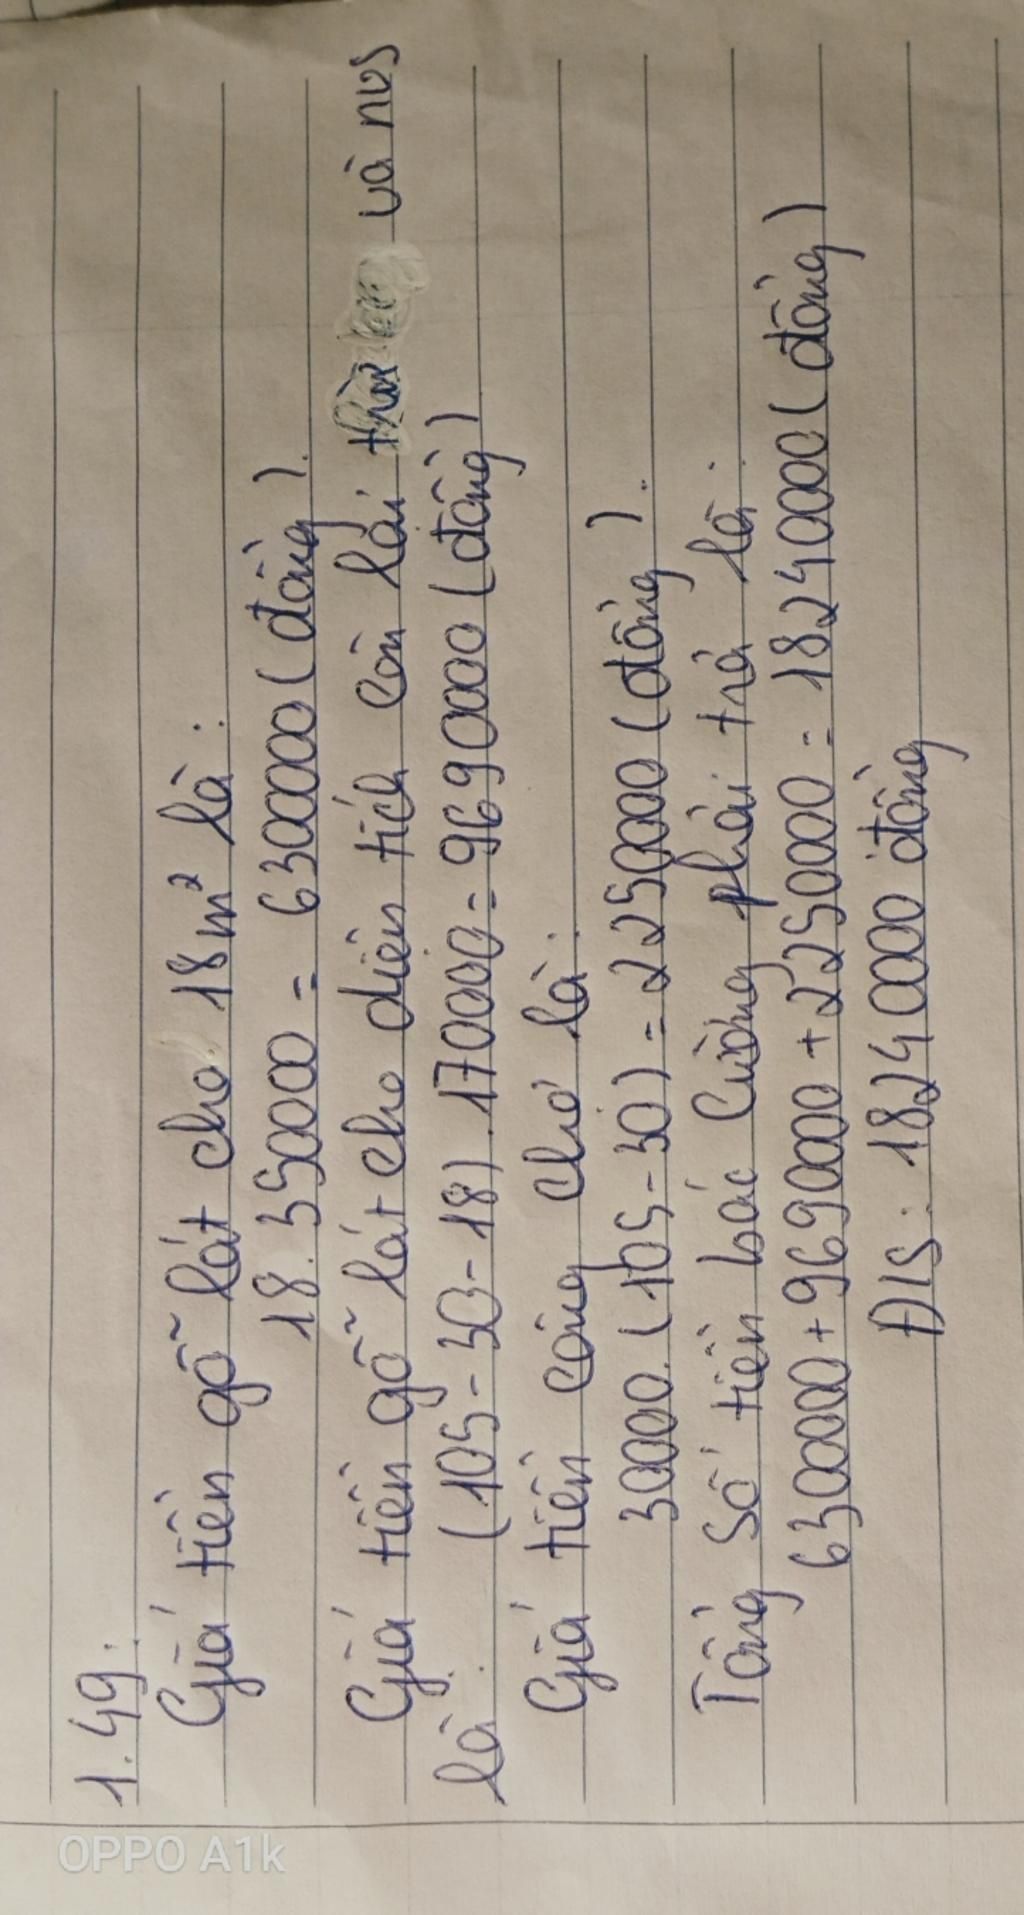 1.49:
Giá tiền gỗ lát cho 18m² là:
18.35000 = 630000 (đồng).
Giá tiền gỗ lát cho diện tích còn lại trừ và nvs
là: (105-30-18).17000=969000 (đồng)
Giá tiền công cho là:
30000.(105-30)=225000 (đồng).
Tổng số tiền bác Cường phải trả là:
630000+969000+225000=1824000 (đồng)
Đ/S: 1824000 đồng
OPPO A1k